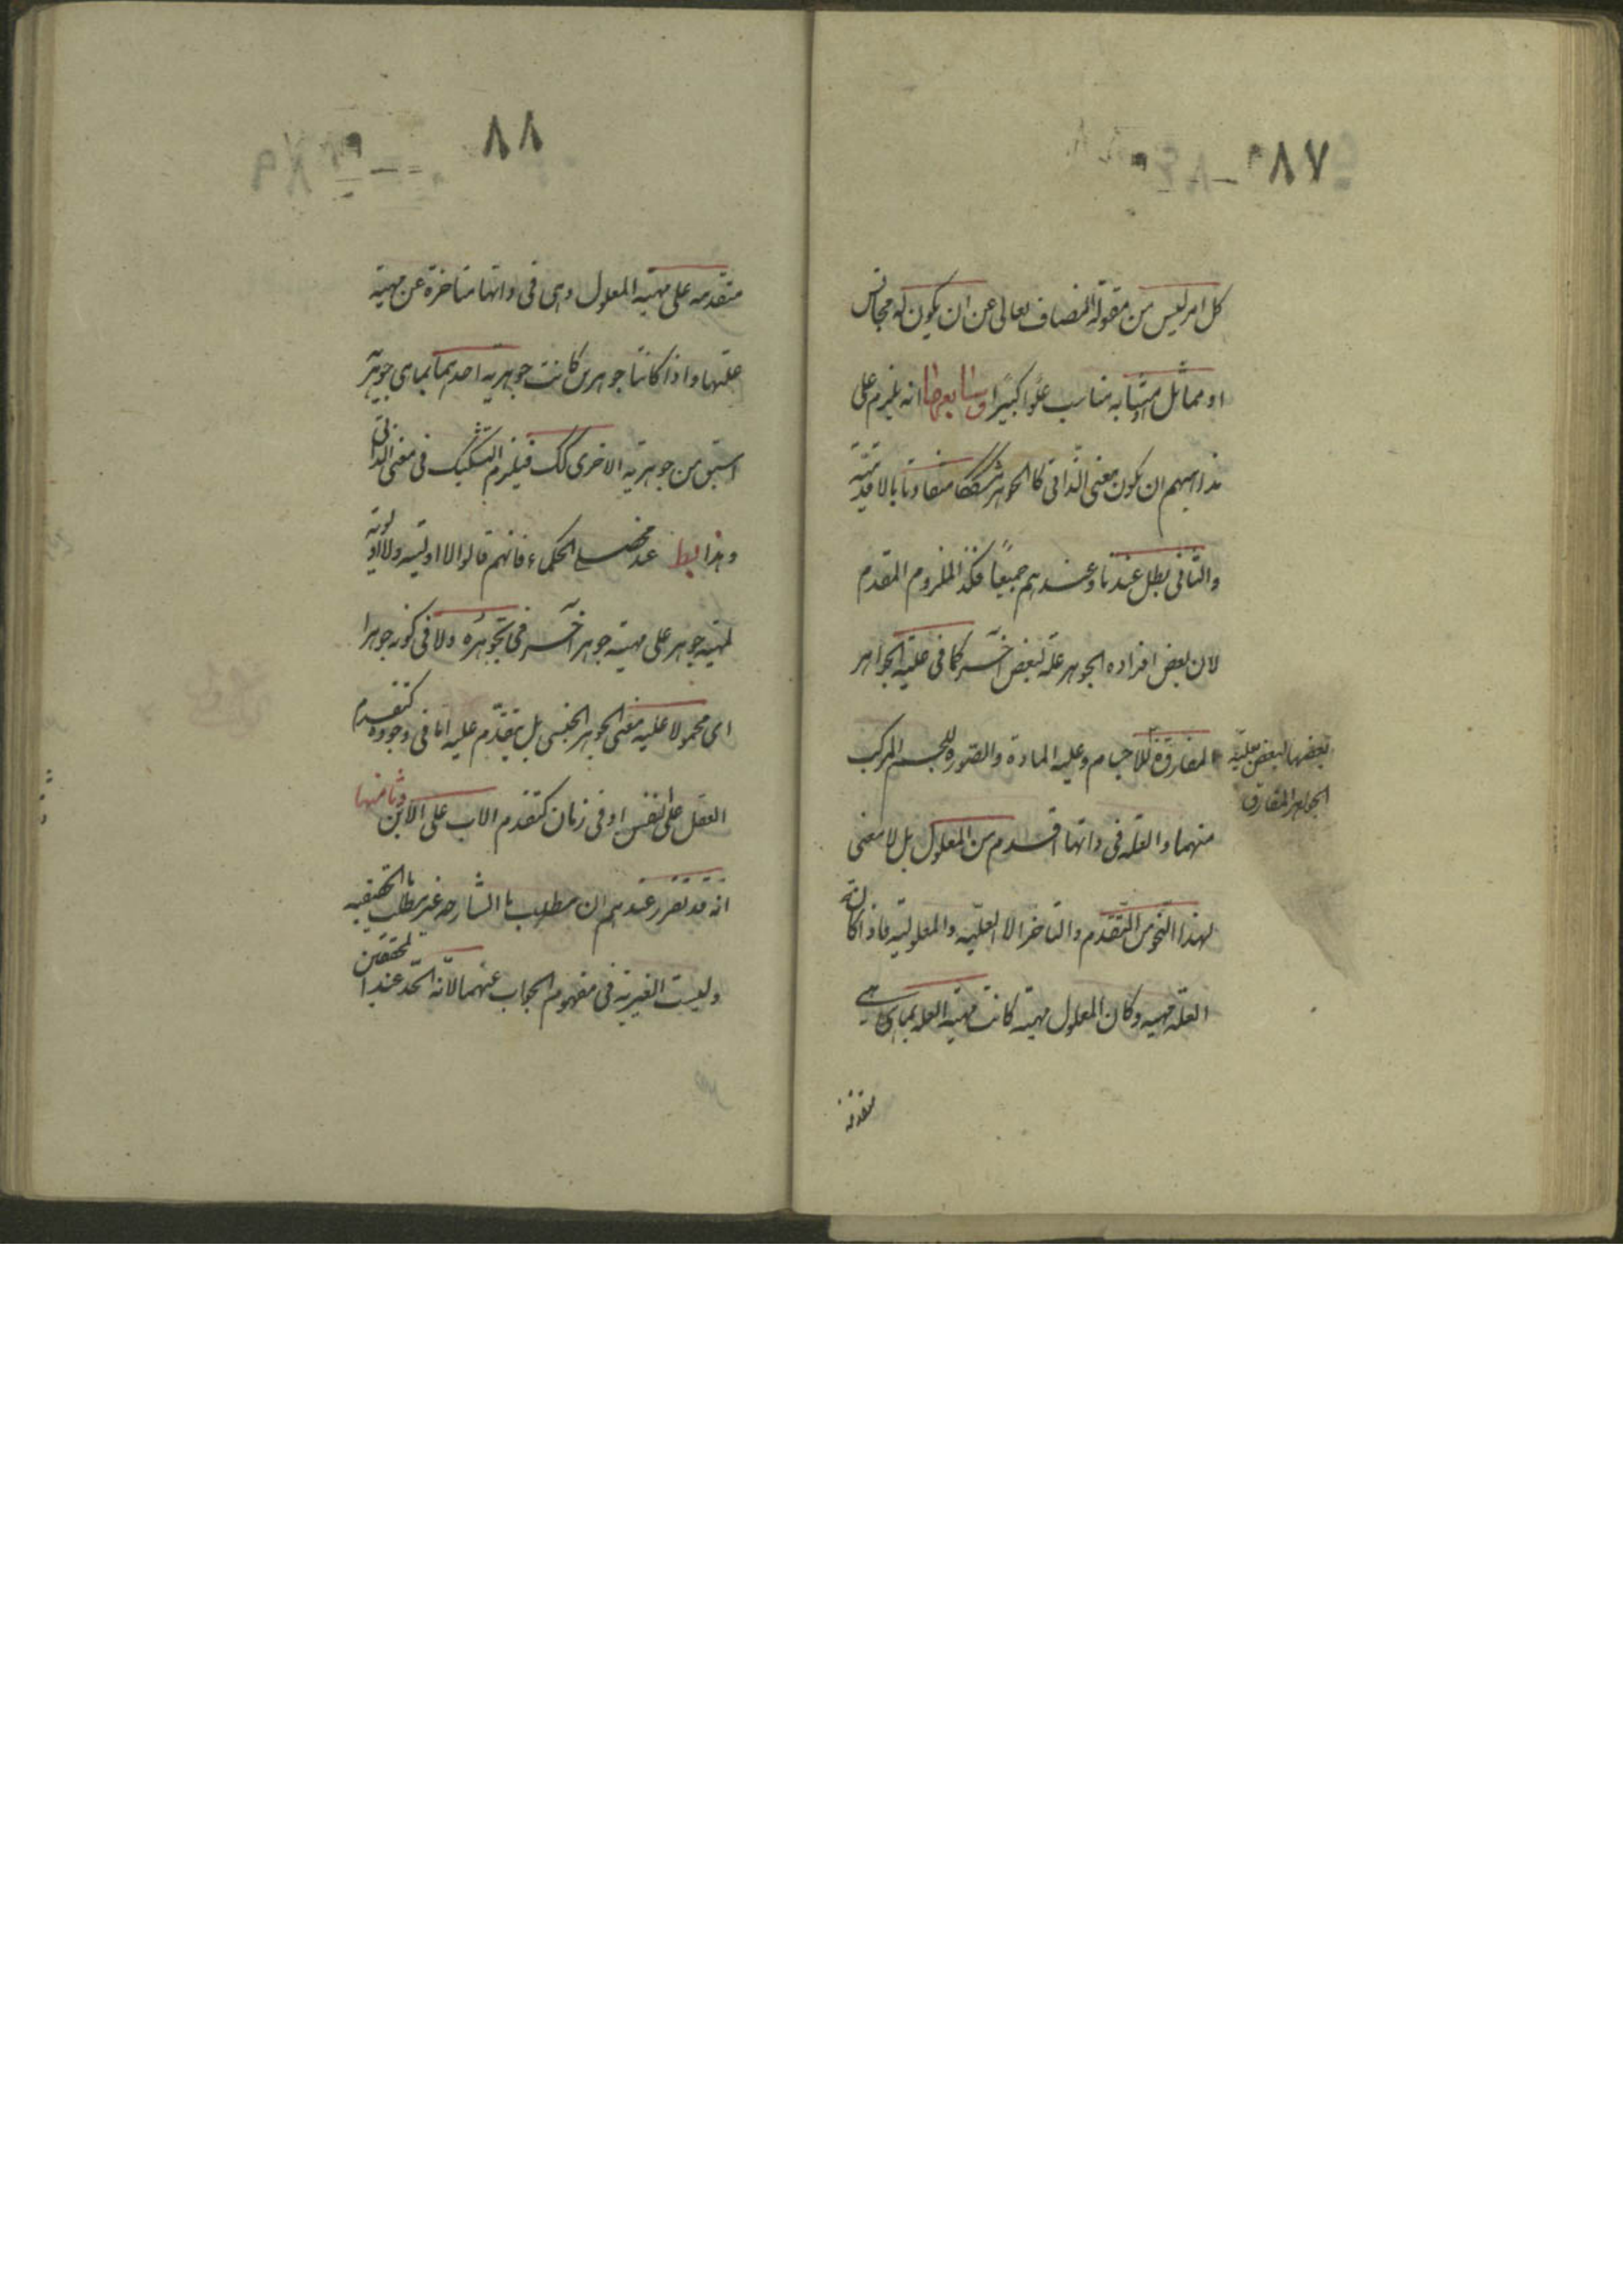 ٨٧
كل امر ليس من مقولة المضاف تعالى عن ان يكون له مجانس
او مماثل او مشابه مناسب علوا كبيرا وسابعها انه يلزم على
مذاهبهم ان يكون معنى الذاتى كالجوهر مشككا متفاوتا بالاقدمية
والتالى بط عندنا وعندهم جميعاً فكذا الملزوم المقدم
لان بعض افراده الجوهر علة لبعض آخر كما فى علية الجواهر
المفارقة للاجسام وعلية المادة والصورة للجسم المركب
بعضها لبعض علية
الجواهر المفارق
منهما والعلة فى ذاتها اقدم من المعلول بل لا معنى
لهذا النحو من التقدم والتاخر الا العلية والمعلولية فاذا كانت
العلة مهية وكان المعلول مهية كانت مهية العلة بما هى هى
متقدمة
٨٨
متقدمه على مهية المعلول وهى فى ذاتها متاخرة عن مهية
علتها واذا كانتا جوهرين كانت جوهرية احدهما بما هى جوهرية
اسبق من جوهرية الاخرى كك فيلزم التشكيك فى معنى الذاتى
وهذا بط عند محصلى الحكماء فانهم قالوا لا اولية ولا اولوية
لمهية جوهر على مهية جوهر آخر فى تجوهره ولا فى كونه جوهرا
اى محمولا عليه معنى الجوهر الجنسى بل يتقدّم عليه اما فى وجوده كتقدم
العقل على النفس او فى زمان كتقدم الاب على الابن وثامنها
انه قد تقرر عندهم ان مطلب ما الشارحه غير مطلب ما الحقيقيه
وليست الغيرية فى مفهوم الجواب عنهما لانه الحدّ عند المحققين